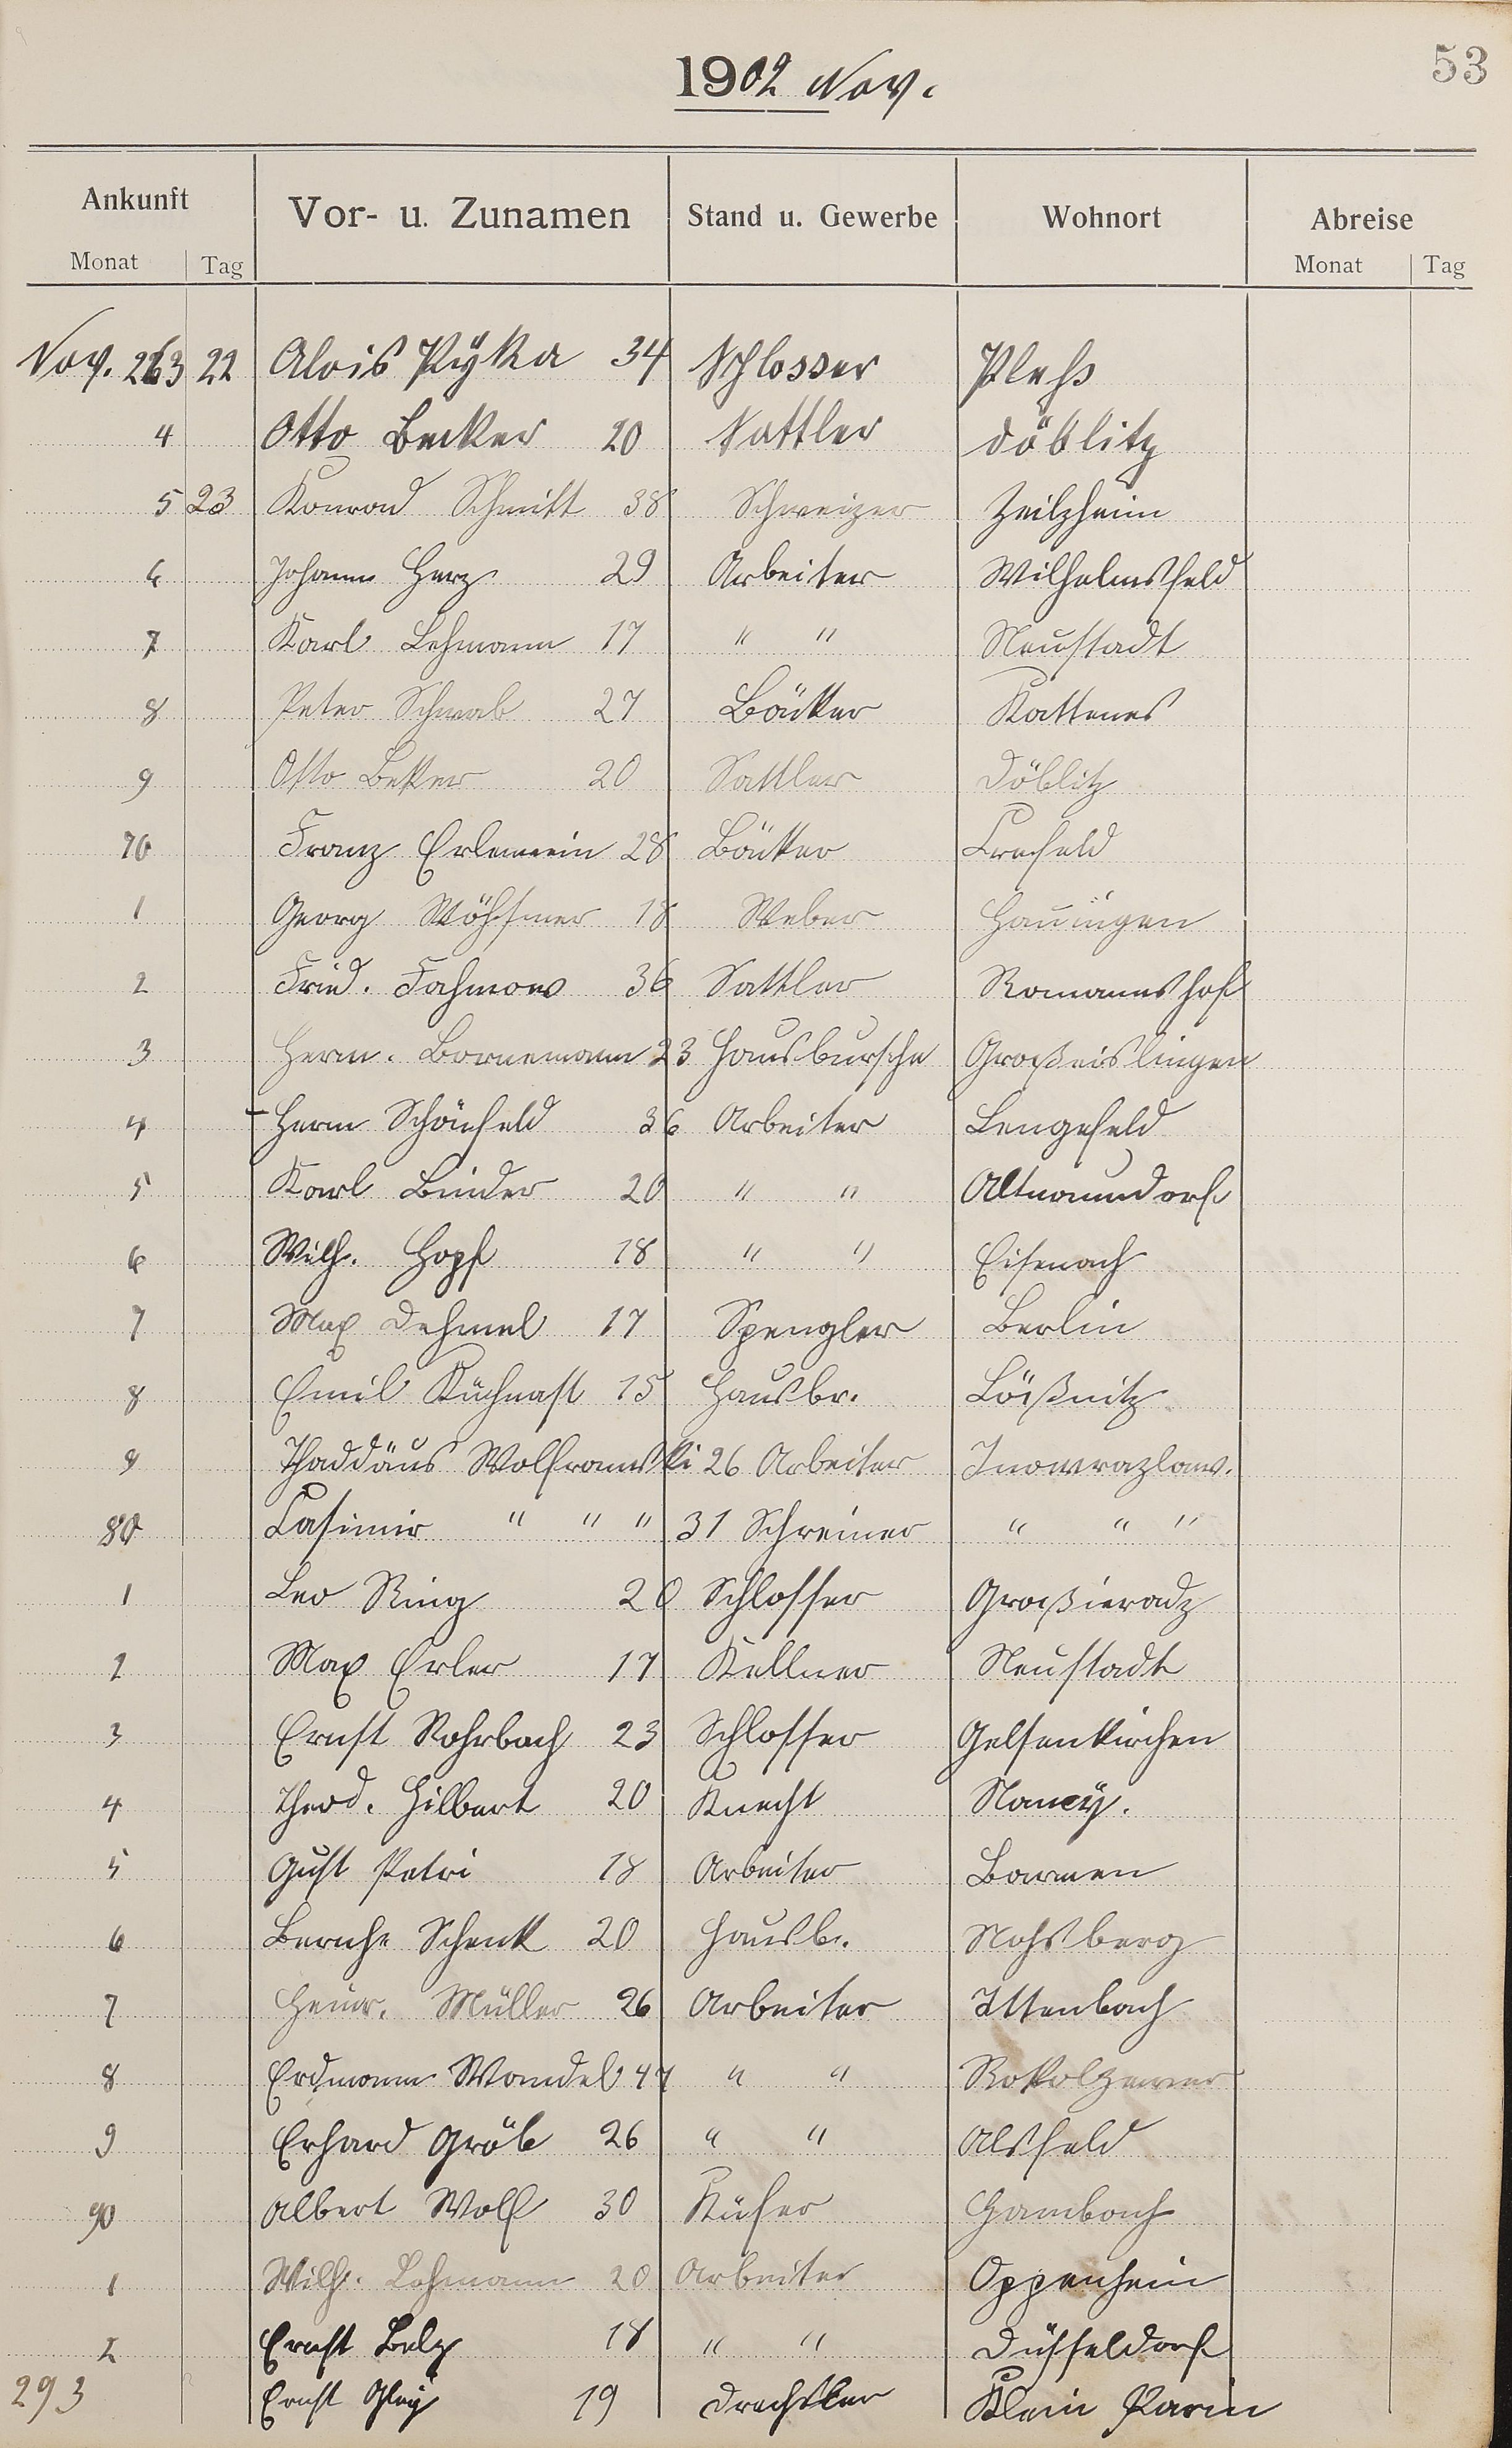 53
1902 Nov.
Ankunft Vor- u. Zunamen Stand u. Gewerbe Wohnort Abreise
Monat Tag Monat Tag
Nov. 263 22 Alois Pÿka 34 Schlosser Pleß
4 Otto Becker 20 Sattler Döblitz
5 23 Konrad Schmitt 38 Schweizer Zeilzheim
6 Johann Herz 29 Arbeiter Wilhelmsfeld
7 Karl Lehmann 17 " " Neustadt
8 Peter Schwab 27 Bäcker Kattenes
9 Otto Beker 20 Sattler Döblitz
70 Franz 28 Bäcker Crefeld
1 Georg 18 Weber Hauingen
2 Fried. 36 Sattler Romannshof
3 Herm. Bornemann 23 Hausbursche Großeislingen
4 Herm Schönfeld 36 Arbeiter Lengefeld
5 Karl Binder 20 " " Altnaundorf
6 Wilh. Hopf 18 " " Eisenach
7 Max Dehmel 17 Spengler Berlin
8 Emil Küchnast 15 Hausbr. Lößnitz
9 Thaddäus Wolframski 26 Arbeiter Inowrazlaw.
80 Casimir " " " 31 Schreiner " " "
1 Leo Ring 20 Schlosser
2 Max Erler 17 Kellner Neustadt
3 Ernst Rohrbach 23 Schlosser Gelsenkirchen
4 Theod. Hilbert 20 Knecht Nancÿ.
5 Gust Petri 18 Arbeiter Barmen
6 Schenk 20 Hausb.
7 Heinr. Müller 26 Arbeiter Ittenbach
8 Erdmann Wandel 47 " "
9 Erhard Gröb 26 " " Alsfeld
90 Albert Wolf 30 Küfer Gambach
1 Wilh. Lehmann 20 Arbeiter Oppenheim
2 Ernst Belz 18 " " Düsseldorf
293 Ernst 19 Drechsler Klein Parin